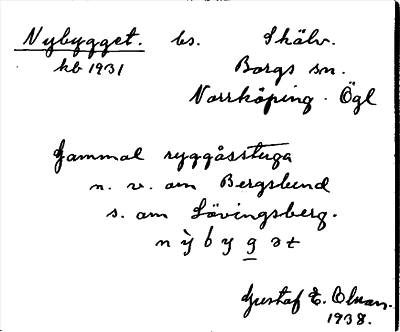 Nybygget. bs. Skälv.
kb 1931 Borgs sn.
Norrköping. Ögl
Gammal ryggåsstuga
n. v. om Bergslund
s. om Lövingsberg.
nỳbygət
Gustaf E. Olsson.
1938.